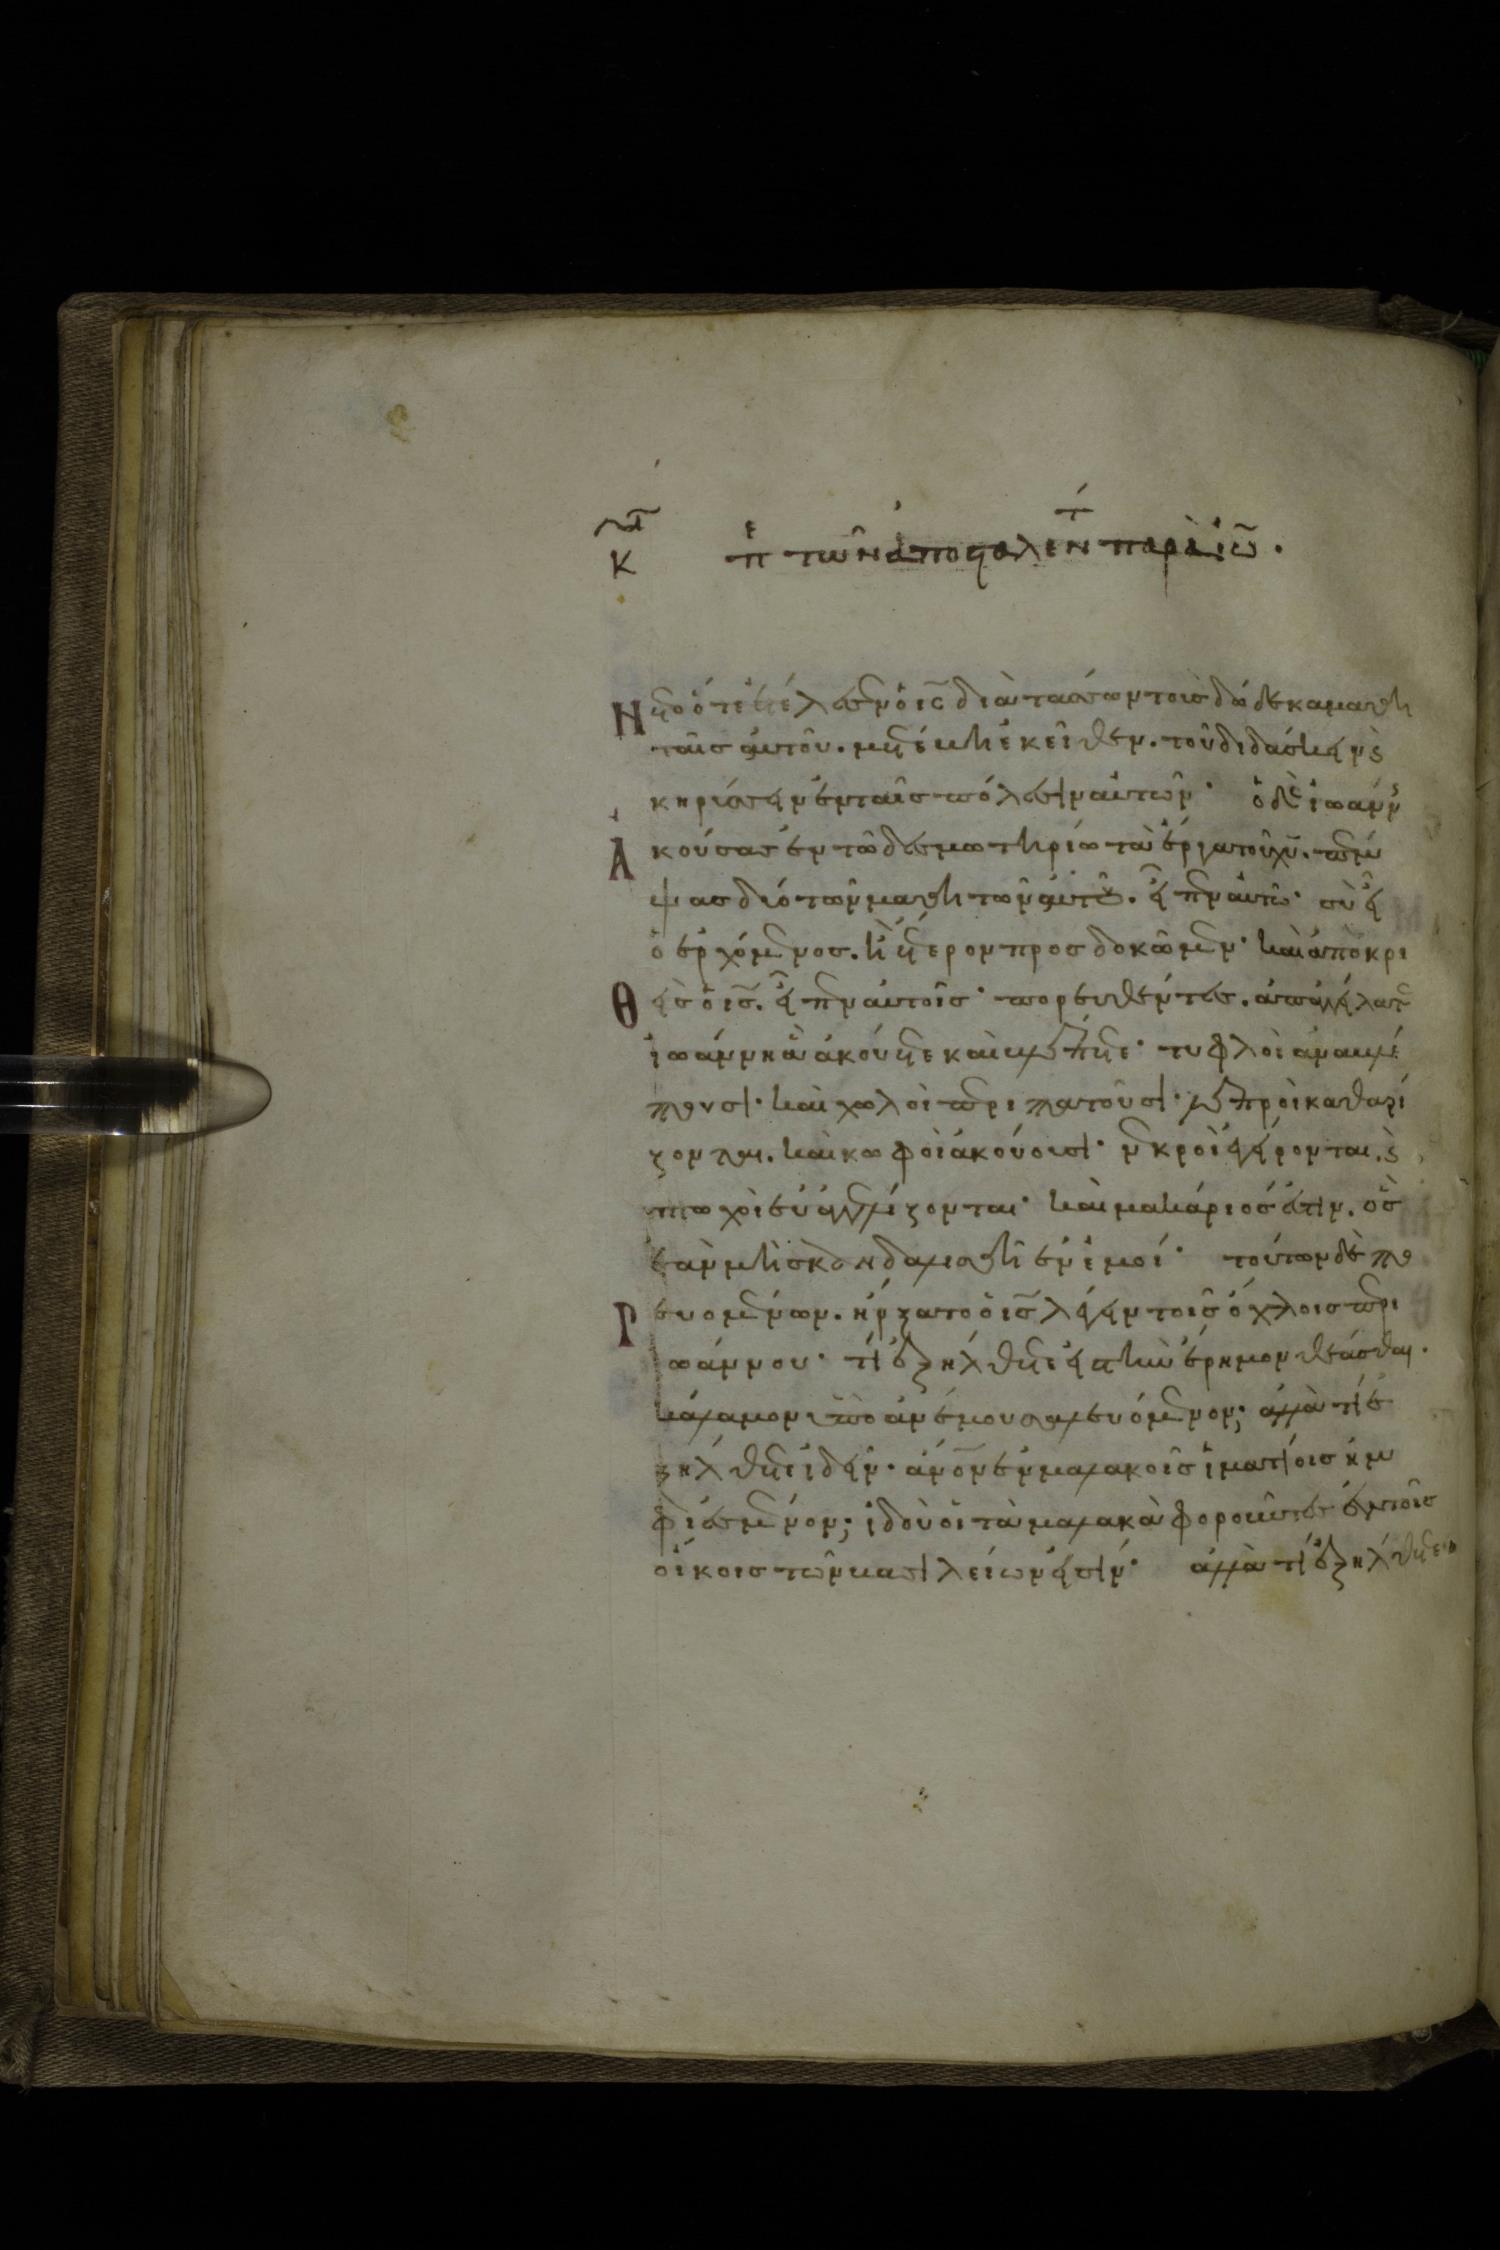 κ περὶ τῶν ἀποσταλέντ παρὰ ἰω̃.
ετο ὅτε ἐτέλεσεν ὁ ις διατάσσων τοῖς δώδεκα μαθη
ταῖς αὐτοῦ. μετέβη ἐκεῖθεν. τοῦ διδάσκειν καὶ
κηρύσσειν ἐν ταῖς πόλεσιν αὐτῶν· ὁ δὲ ἰωάνν
Ακούσας ἐν τῶ δεσμωτηρίω τὰ ἔργα τοῦ χυ. πέμ
ψας δύο τῶν μαθητῶν αὐτοῦ. εἶπεν αὐτῶ· σὺ εἶ
ὁ ἐρχόμενος. ἢ ἕτερον προσδοκῶμεν· καὶ ἀποκρι
Θεὶς ὁ ις. εἶπεν αὐτοῖς· πορευθέντες. ἀπαγγείλατε
ἰωάννη ἃ ἀκούετε καὶ βλέπετε· τυφλοὶ ἀναβλέ
πουσι· καὶ χωλοὶ περιπατοῦσι· λεπροὶ καθαρί
ζονται. καὶ κωφοὶ ἀκούουσι· νεκροὶ ἐγείρονται. καὶ
πτωχοὶ εὐαγγελίζονται· καὶ μακάριός ἐστιν. ὃς
ἐὰν μὴ σκανδαλισθῆ ἐν ἐμοί· τούτων δὲ πο
Ρευομένων. ἤρξατο ὁ ις λέγειν τοῖς ὄχλοις περὶ
ἰωάννου· τί ἐξήλθετε εἰς τὴν ἔρημον θεάσθαι.
κάλαμον ὑπὸ ἀνέμου σαλευόμενον; ἀλλὰ τί ἐ
ξήλθετε ἰδεῖν· ἄνον ἐν μαλακοῖς ἱματίοις ἠμ
φιεσμένον; ἰδοὺ οἱ τὰ μαλακὰ φοροῦντες ἐν τοῖς
οἴκοις τῶν βασιλείων εἰσίν· ἀλλὰ τί ἐξήλθετε